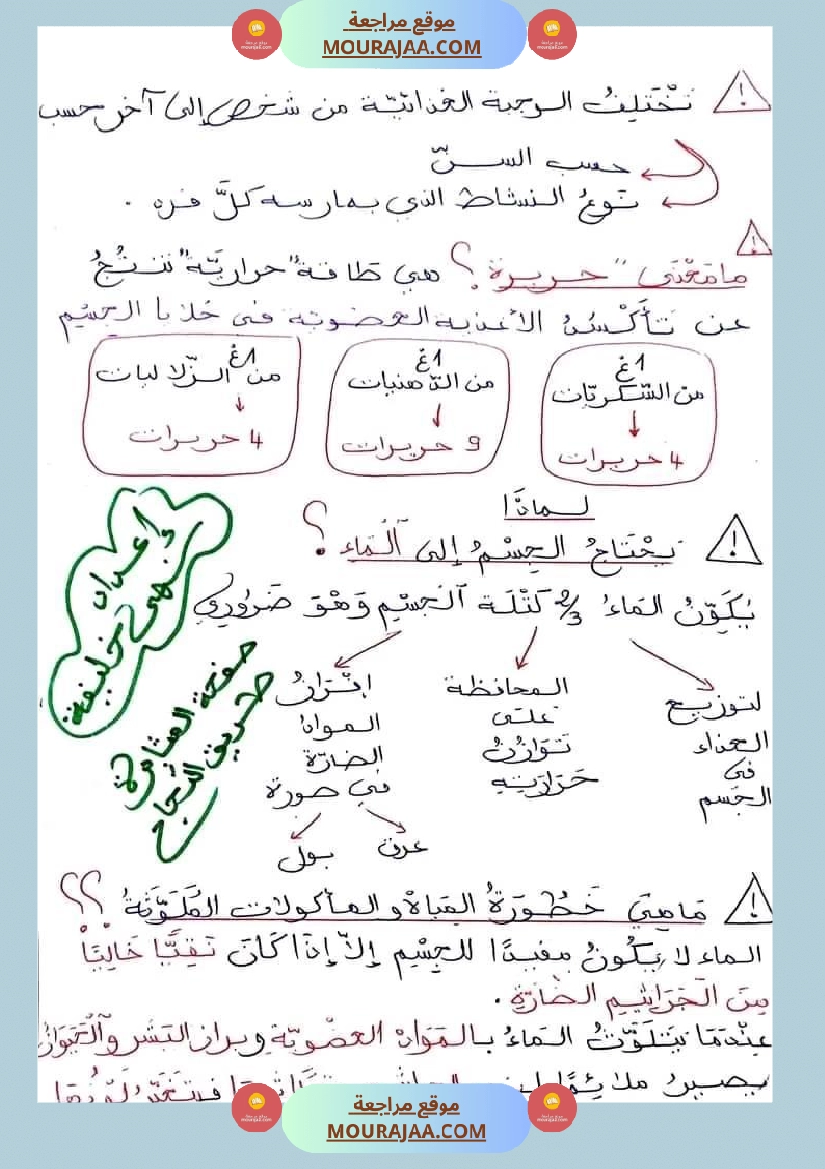 موقع مراجعة
MOURAJAA.COM
تَخْتَلِفُ الوجبة الغذائيّة من شخص إلى آخر حسب
حسب السنّ
نوعُ النشاط الذي يمارسه كلَّ فرد .
ما مَعْنَى "حريرة" ؟ هي طاقة "حراريّة" تنتُجُ
عن تَأَكْسُدِ الأغذية العضوية في خلايا الجسْمِ
1غ
من السّكريّات
4 حريرات
1غ
من الدّهنيات
9 حريرات
1غ
من الزّلاليات
4 حريرات
لماذَا
يَحْتَاجُ الجِسْمُ إلى ٱلْمَاء ؟
يُكَوِّنُ المَاءُ 2/3 كُتْلَة ٱلْجِسْمِ وَهْوَ ضَرُورِي
لتوزيع
الغذاء
في
الجسم
المحافظة
على
تَوَازُنُ
حَرَارَتِهِ
إِفْرَازُ
المواد
الضارّة
في صورة
عرق
بول
إعداد
خليفة
صفحة
طريق النجاح
مَاهِيَ خَطُورَةُ المياه و المأكولات المُلَوَّثَةُ ؟؟
الماء لا يَكُونُ مفيدًا للجِسْمِ إِلاّ إِذَا كَانَ نَقِيًّا خَالِيًا
مِنَ الْجَرَاثِيمِ الضارّةِ .
عِنْدَمَا يَتَلَوَّثُ المَاءُ بالمَوَادِ العضْوِيّةِ وبراز البَشَرِ وَٱلْحَيَوَانِ
يصيرُ ملائِمًا
موقع مراجعة
MOURAJAA.COM